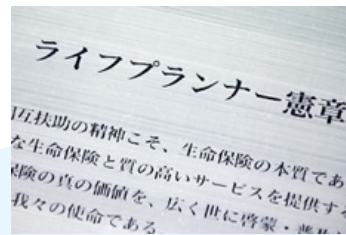 ライフプランナー憲章
互扶助の精神こそ、生命保険の本質であ
な生命保険と質の高いサービスを提供す
険の真の価値を、広く世に啓蒙・普
我々の使命である